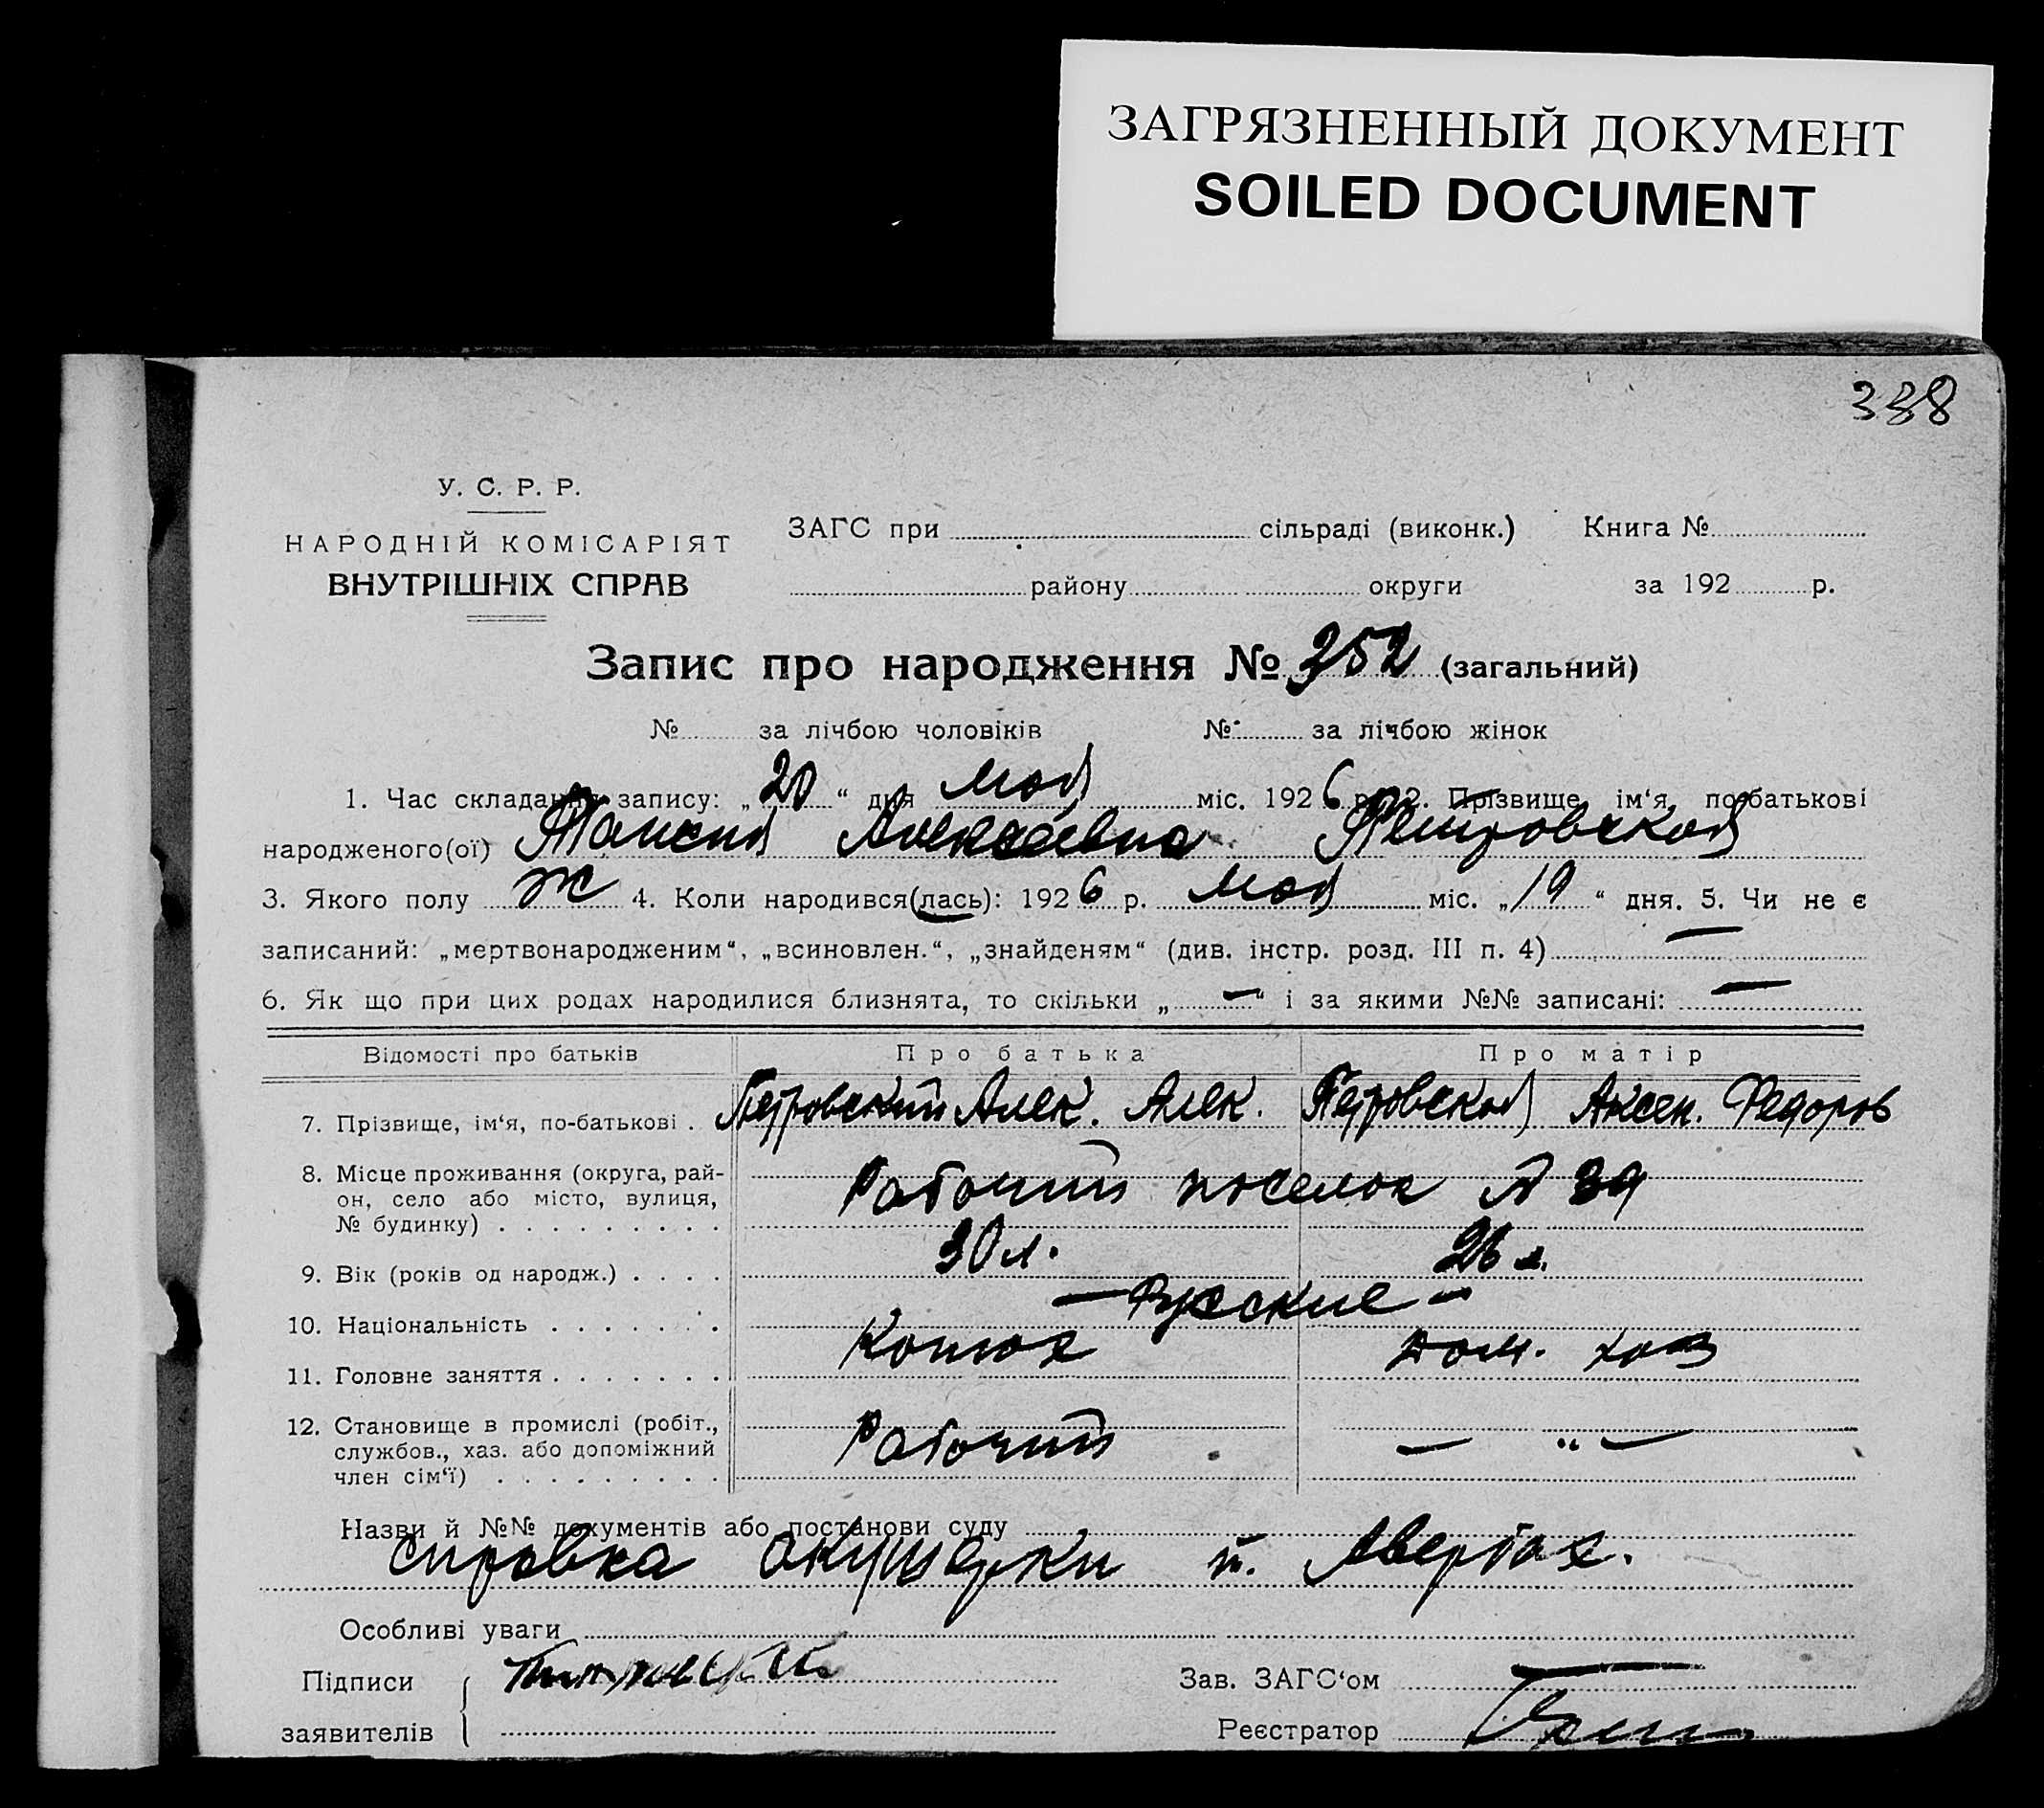 ЗАГРЯЗНЕННЫЙ ДОКУМЕНТ
SOILED DOCUMENT
338
У. С. Р. Р.
НАРОДНІЙ КОМІСАРІЯТ
ВНУТРІШНІХ СПРАВ
ЗАГС при сільраді (виконк.) Книга №
району округи за 192 р.
Запис про народження № 352 (загальний)
№ за лічбою чоловіків № за лічбою жінок
1. Час складання запису: „20“ дня мая міс. 1926 р. 2. Прізвище, ім‘я, по-батькові
народженого(ої) Таисия Алексеевна Петровская
3. Якого полу ж 4. Коли народився(лась): 1926 р. мая міс. „19“ дня. 5. Чи не є
записаний: „мертвонародженим“, „всиновлен.“, „знайденям“ (див. інстр. розд. III п. 4) —
6. Як що при цих родах народилися близнята, то скільки „—“ і за якими №№ записані: —
Відомості про батьків Про батька Про матір
7. Прізвище, ім‘я, по-батькові . Петровский Алек. Алек. Петровская Аксен. Федоров
8. Місце проживання (округа, рай-
он, село або місто, вулиця, Рабочий поселок № 39
№ будинку) . . . . . . . . .
9. Вік (років од народж.) . . . . 30 л. 26 л.
10. Національність . . . . . . . — Русские —
11. Головне заняття . . . . . . . Конюх дом. хоз
12. Становище в промислі (робіт.,
службов., хаз. або допоміжний Рабочий — „ —
член сім‘ї) . . . . . . . . .
Назви й №№ документів або постанови суду
справка акушерки т. Авербах.
Особливі уваги
Підписи Зав. ЗАГС‘ом
заявителів Реєстратор